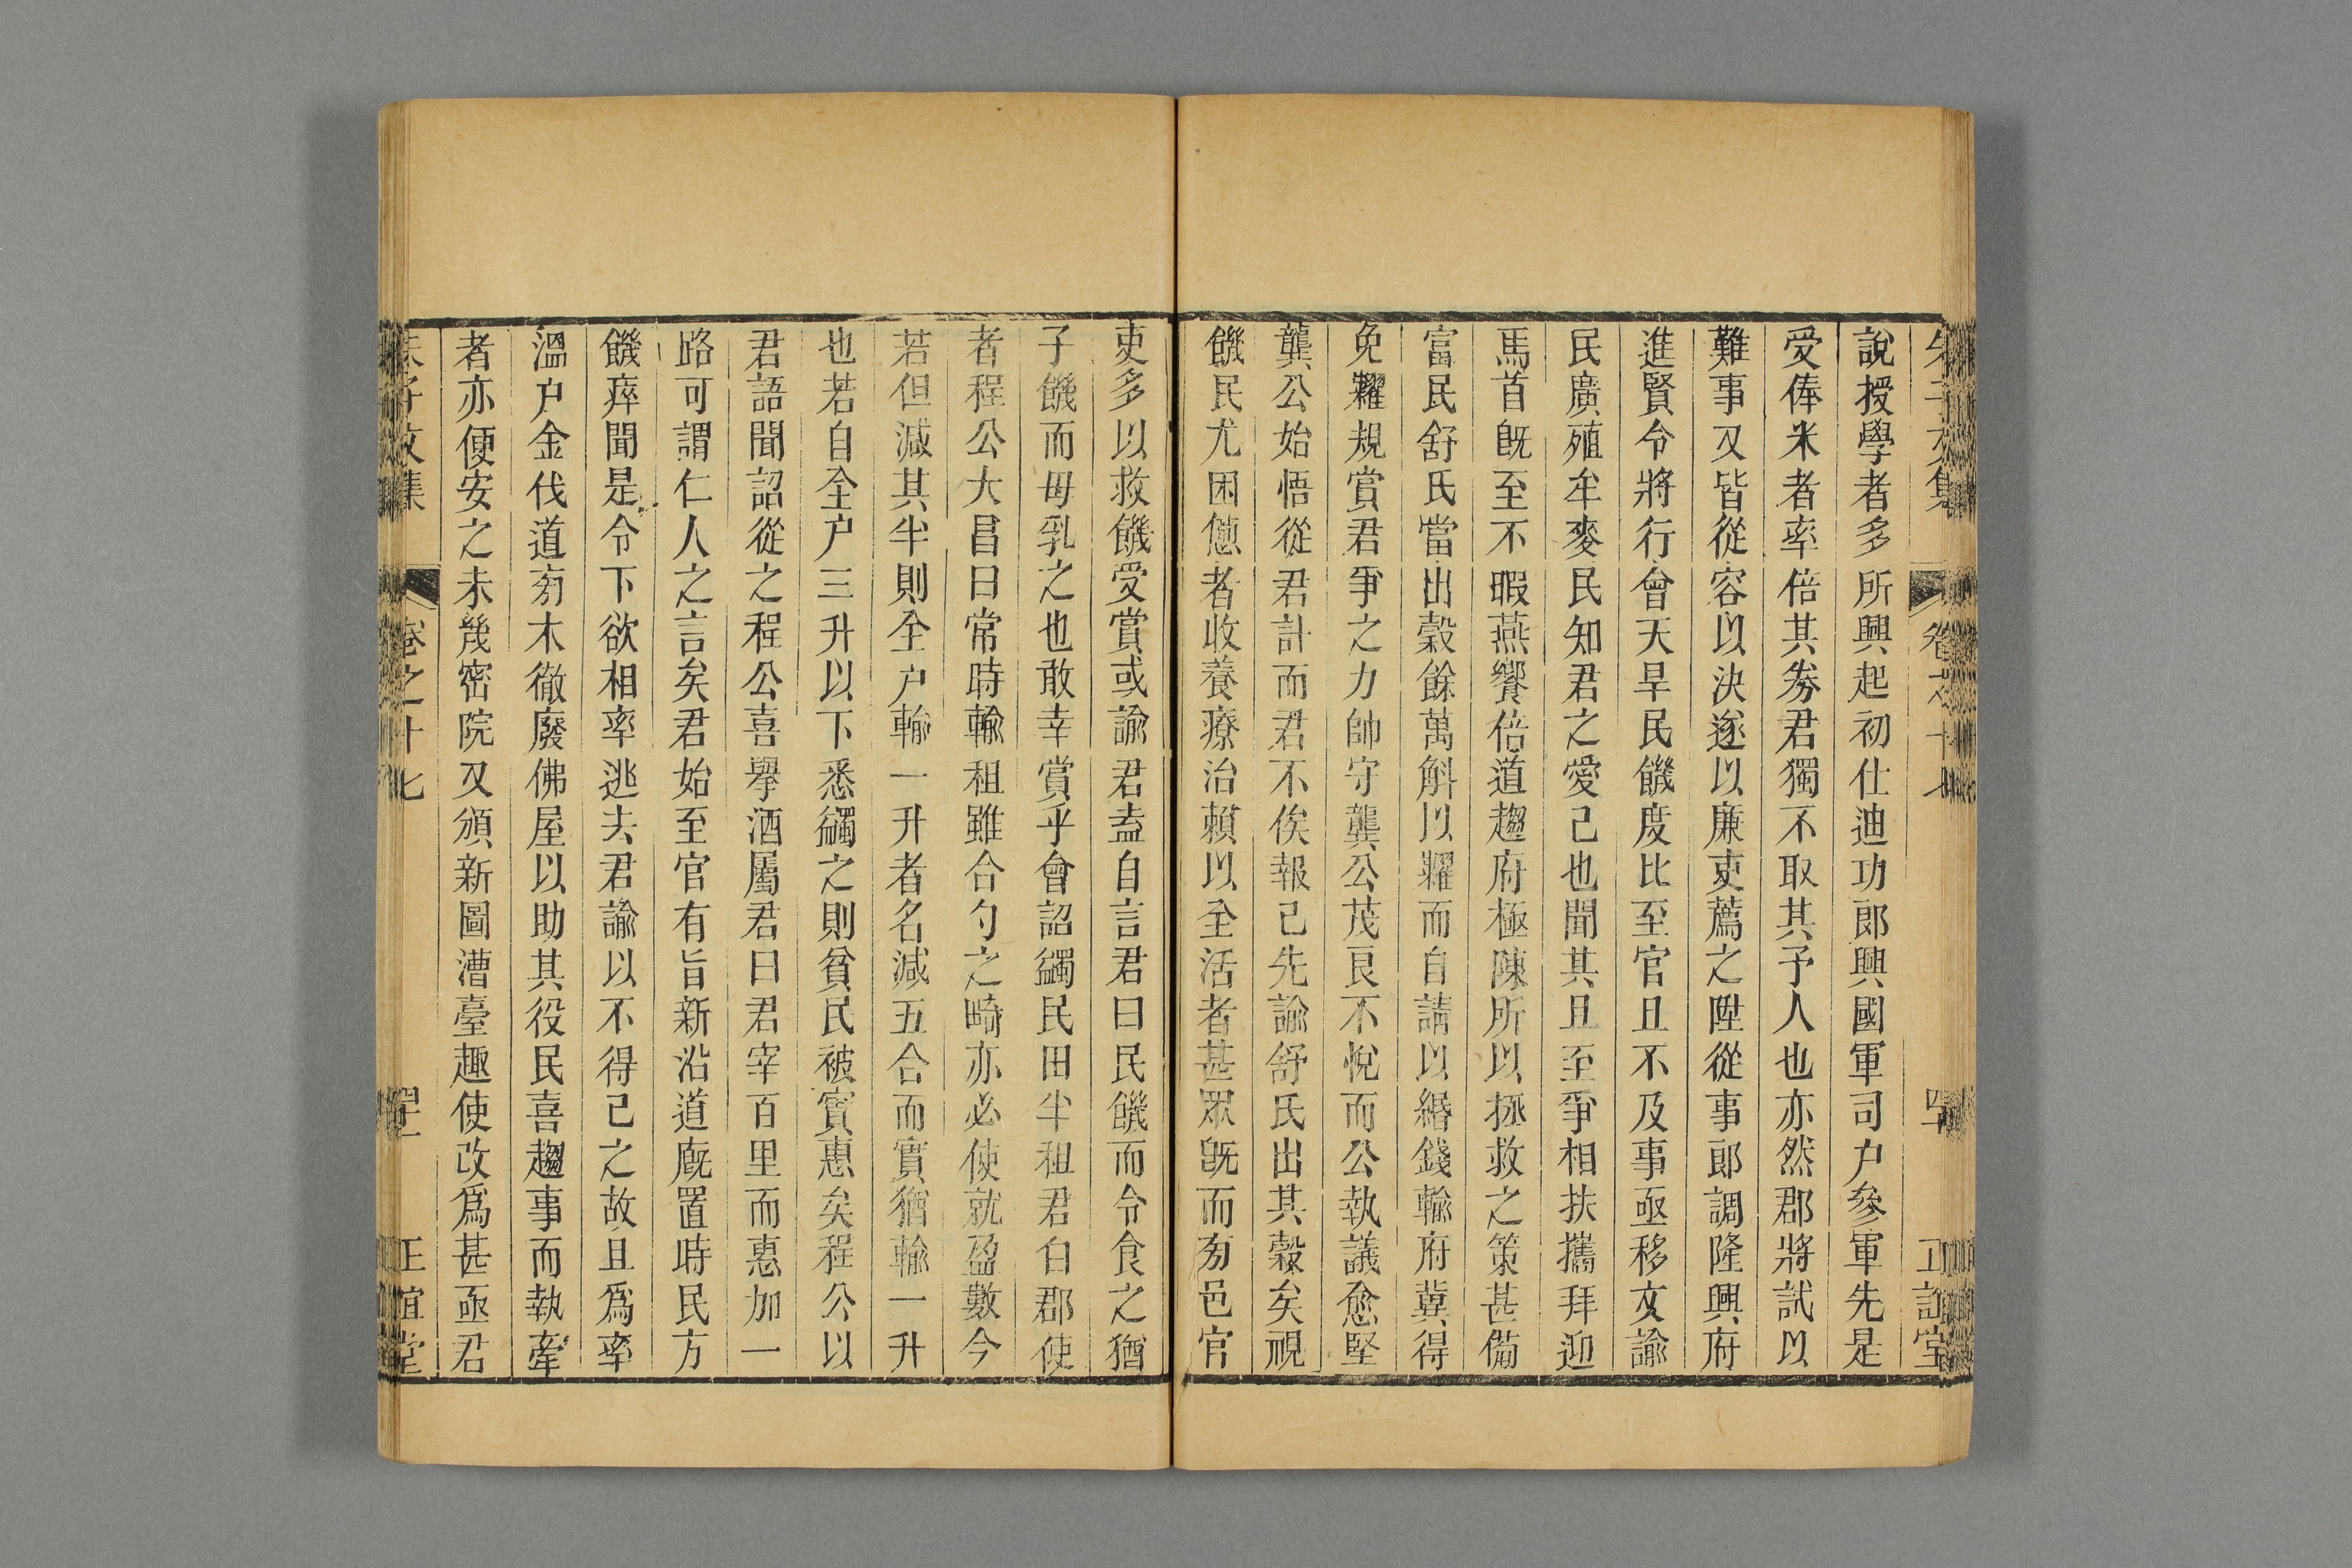 說授學者多所興起初仕迪功郎興國軍司户參軍先是
受俸米者率倍其劵君獨不取其予人也亦然郡將試以
難事又皆從容以決遂以廉吏薦之陞從事郎調隆興府
進賢令將行會天旱民饑度比至官且不及事亟移文諭
民廣殖牟麥民知君之愛己也聞其且至爭相扶攜拜迎
馬首旣至不暇燕饗倍道趨府極陳所以拯救之策甚備
富民舒氏當出穀餘萬斛以糶而自請以緡錢輸府冀得
免糶規賞君爭之力帥守龔公茂良不悅而公執議愈堅
龔公始悟從君計而君不俟報已先諭舒氏出其穀矣視
饑民尤困憊者收養療治賴以全活者甚眾旣而旁邑官
吏多以救饑受賞或諭君盍自言君曰民饑而令食之猶
子饑而毋乳之也敢幸賞乎會詔蠲民田半租君白郡使
者程公大昌曰常時輸租雖合勺之畸亦必使就盈數今
若但減其半則全户輸一升者名減五合而實猶輸一升
也若自全户三升以下悉蠲之則貧民被實惠矣程公以
君語聞詔從之程公喜舉酒屬君曰君宰百里而惠加一
路可謂仁人之言矣君始至官有旨新沿道廐置時民方
饑瘁聞是令下欲相率逃去君諭以不得已之故且爲率
溫户金伐道旁木徹廢佛屋以助其役民喜趨事而執牽
者亦便安之未幾密院又頒新圖漕臺趣使改爲甚亟君
朱子文集
卷之十七
正誼堂